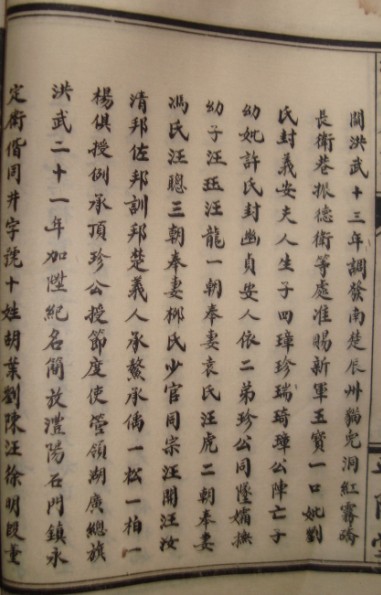 開洪武十三年調發南楚辰州猫兒洞紅霧磜
長衛巷振德衛等處准賜新軍玉寶一口妣劉
氏封義安夫人生子四璋珍瑞琦璋公陣亡子
幼妣許氏封幽貞安人依二弟珍公同陞孀撫
幼子汪玨汪龍一朝奉妻袁氏汪虎二朝奉妻
馮氏汪聰三朝奉妻柳氏少官同宗汪開汪汝
清邦佐邦訓邦楚義人承鰲承僑一松一柏一
楊俱授例承頂珍公授節度使管領湖廣總旗
洪武二十一年加陞紀名簡放澧陽石門鎮永
定衛偕同井字號十姓胡葉劉陳汪徐明段董